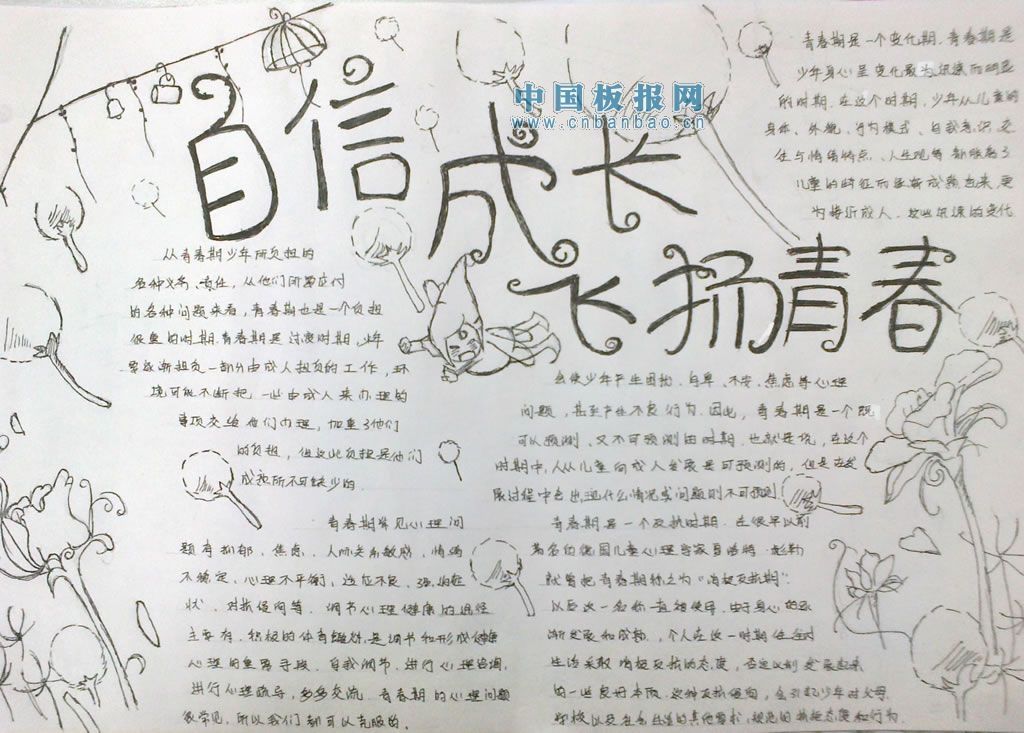 中国板报网
www.cnbanbao.cn
自信成长
飞扬青春
青春期是一个变化期.青春期是
少年身心呈变化最为迅速而明显
的时期.在这个时期,少年从儿童的
身体、外貌、行为模式、自我意识、交
往与情绪特点、人生观等,都脱离了
儿童的特征而逐渐成熟起来,更
为接近成人.这些迅速的变化
会使少年产生困扰、自卑、不安、焦虑等心理
问题,甚至产生不良行为.因此,青春期是一个既
可以预测、又不可预测的时期.也就是说,在这个
时期中,人从儿童向成人发展是可预测的,但是在发
展过程中会出现什么情况或问题则不可预测
从青春期少年所负担的
各种义务、责任,从他们所需应付
的各种问题来看,青春期也是一个负担
很重的时期.青春期是过渡时期,少年
要逐渐担负一部分由成人担负的工作,环
境可能不断把一些由成人来办理的
事项交给他们办理,加重了他们
的负担,但这些负担是他们
成熟所不可缺少的.
青春期常见心理问
题有抑郁、焦虑、人际关系敏感、情绪
不稳定、心理不平衡、适应不良、强迫症
状、对抗倾向等.调节心理健康的途径
主要有.积极的体育锻炼是调节和形成健康
心理的重要手段.自我调节.进行心理咨询,
进行心理疏导,多多交流.青春期的心理问题
很常见,所以我们都可以克服的.
青春期是一个反抗时期.在很早以前
著名的德国儿童心理学家夏洛特·彪勒
就曾把青春期称之为“消极反抗期”.
以后这一名称一直被使用.由于身心的逐
渐发展和成熟.,个人在这一时期往往对
生活采取消极反抗的态度,否定以前发展起来
的一些良好本质.这种反抗倾向,会引起少年对父母.
学校以及社会生活的其他要求、规范的抗拒态度和行为.